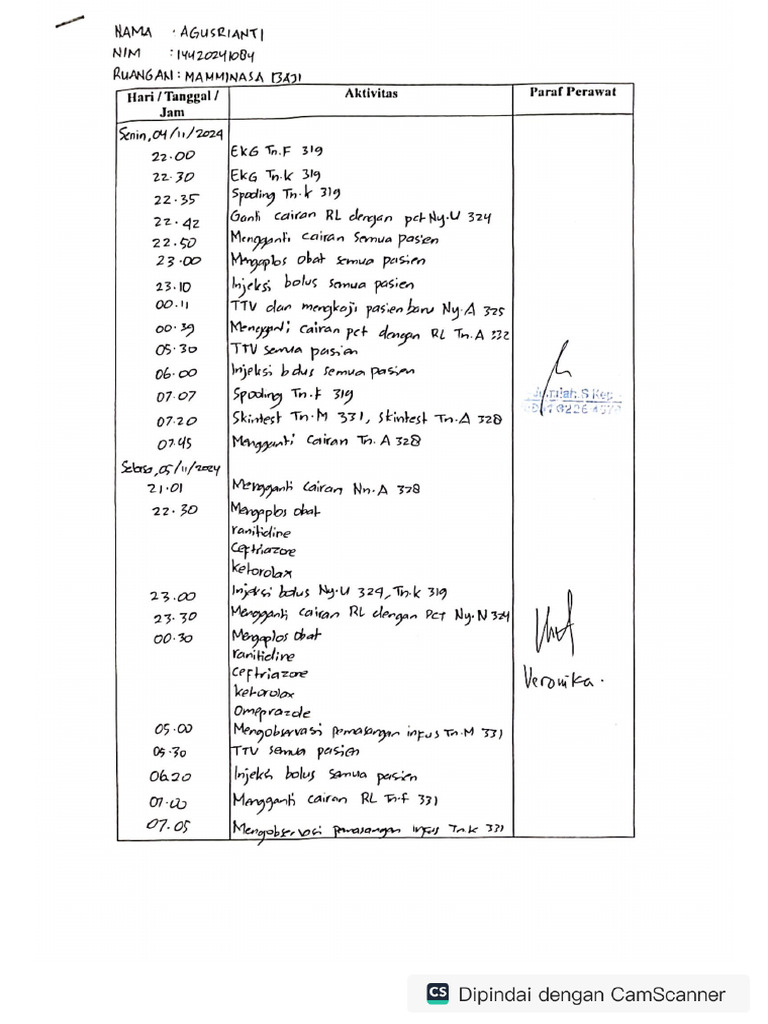 NAMA : AGUSRIANTI
NIM : 14420241084
RUANGAN : MAMMINASA BAJI
Hari / Tanggal / Jam Aktivitas Paraf Perawat
Senin, 04/11/2024
22.00 EKG Tn.F 319
22.30 EKG Tn.K 319
22.35 Spoding Tn.K 319
22.42 Ganti cairan RL dengan pct Ny.U 324
22.50 Mengganti cairan semua pasien
23.00 Mengoplos obat semua pasien
23.10 Injeksi bolus semua pasien
00.11 TTV dan mengkaji pasien baru Ny.A 325
00.39 Mengganti cairan pct dengan RL Tn.A 332
05.30 TTV semua pasien
06.00 Injeksi bolus semua pasien
07.07 Spoding Tn.F 319
07.20 Skintest Tn.M 331, Skintest Tn.A 328
07.45 Mengganti Cairan Tn.A 328
Selasa, 05/11/2024
21.01 Mengganti cairan Nn.A 328
22.30 Mengoplos obat
ranitidine
Ceftriaxone
ketorolax
23.00 Injeksi bolus Ny.U 324, Tn.K 319
23.30 Mengganti cairan RL dengan PCT Ny.N 324
00.30 Mengoplos obat
ranitidine
Ceftriaxone
ketorolax
Omeprazole
Veronika.
05.00 Mengobservasi pemasangan infus Tn.M 331
05.30 TTV semua pasien
06.20 Injeksi bolus semua pasien
07.00 Mengganti cairan RL Tn.F 331
07.05 Mengobservasi pemasangan infus Tn.K 331
CS Dipindai dengan CamScanner